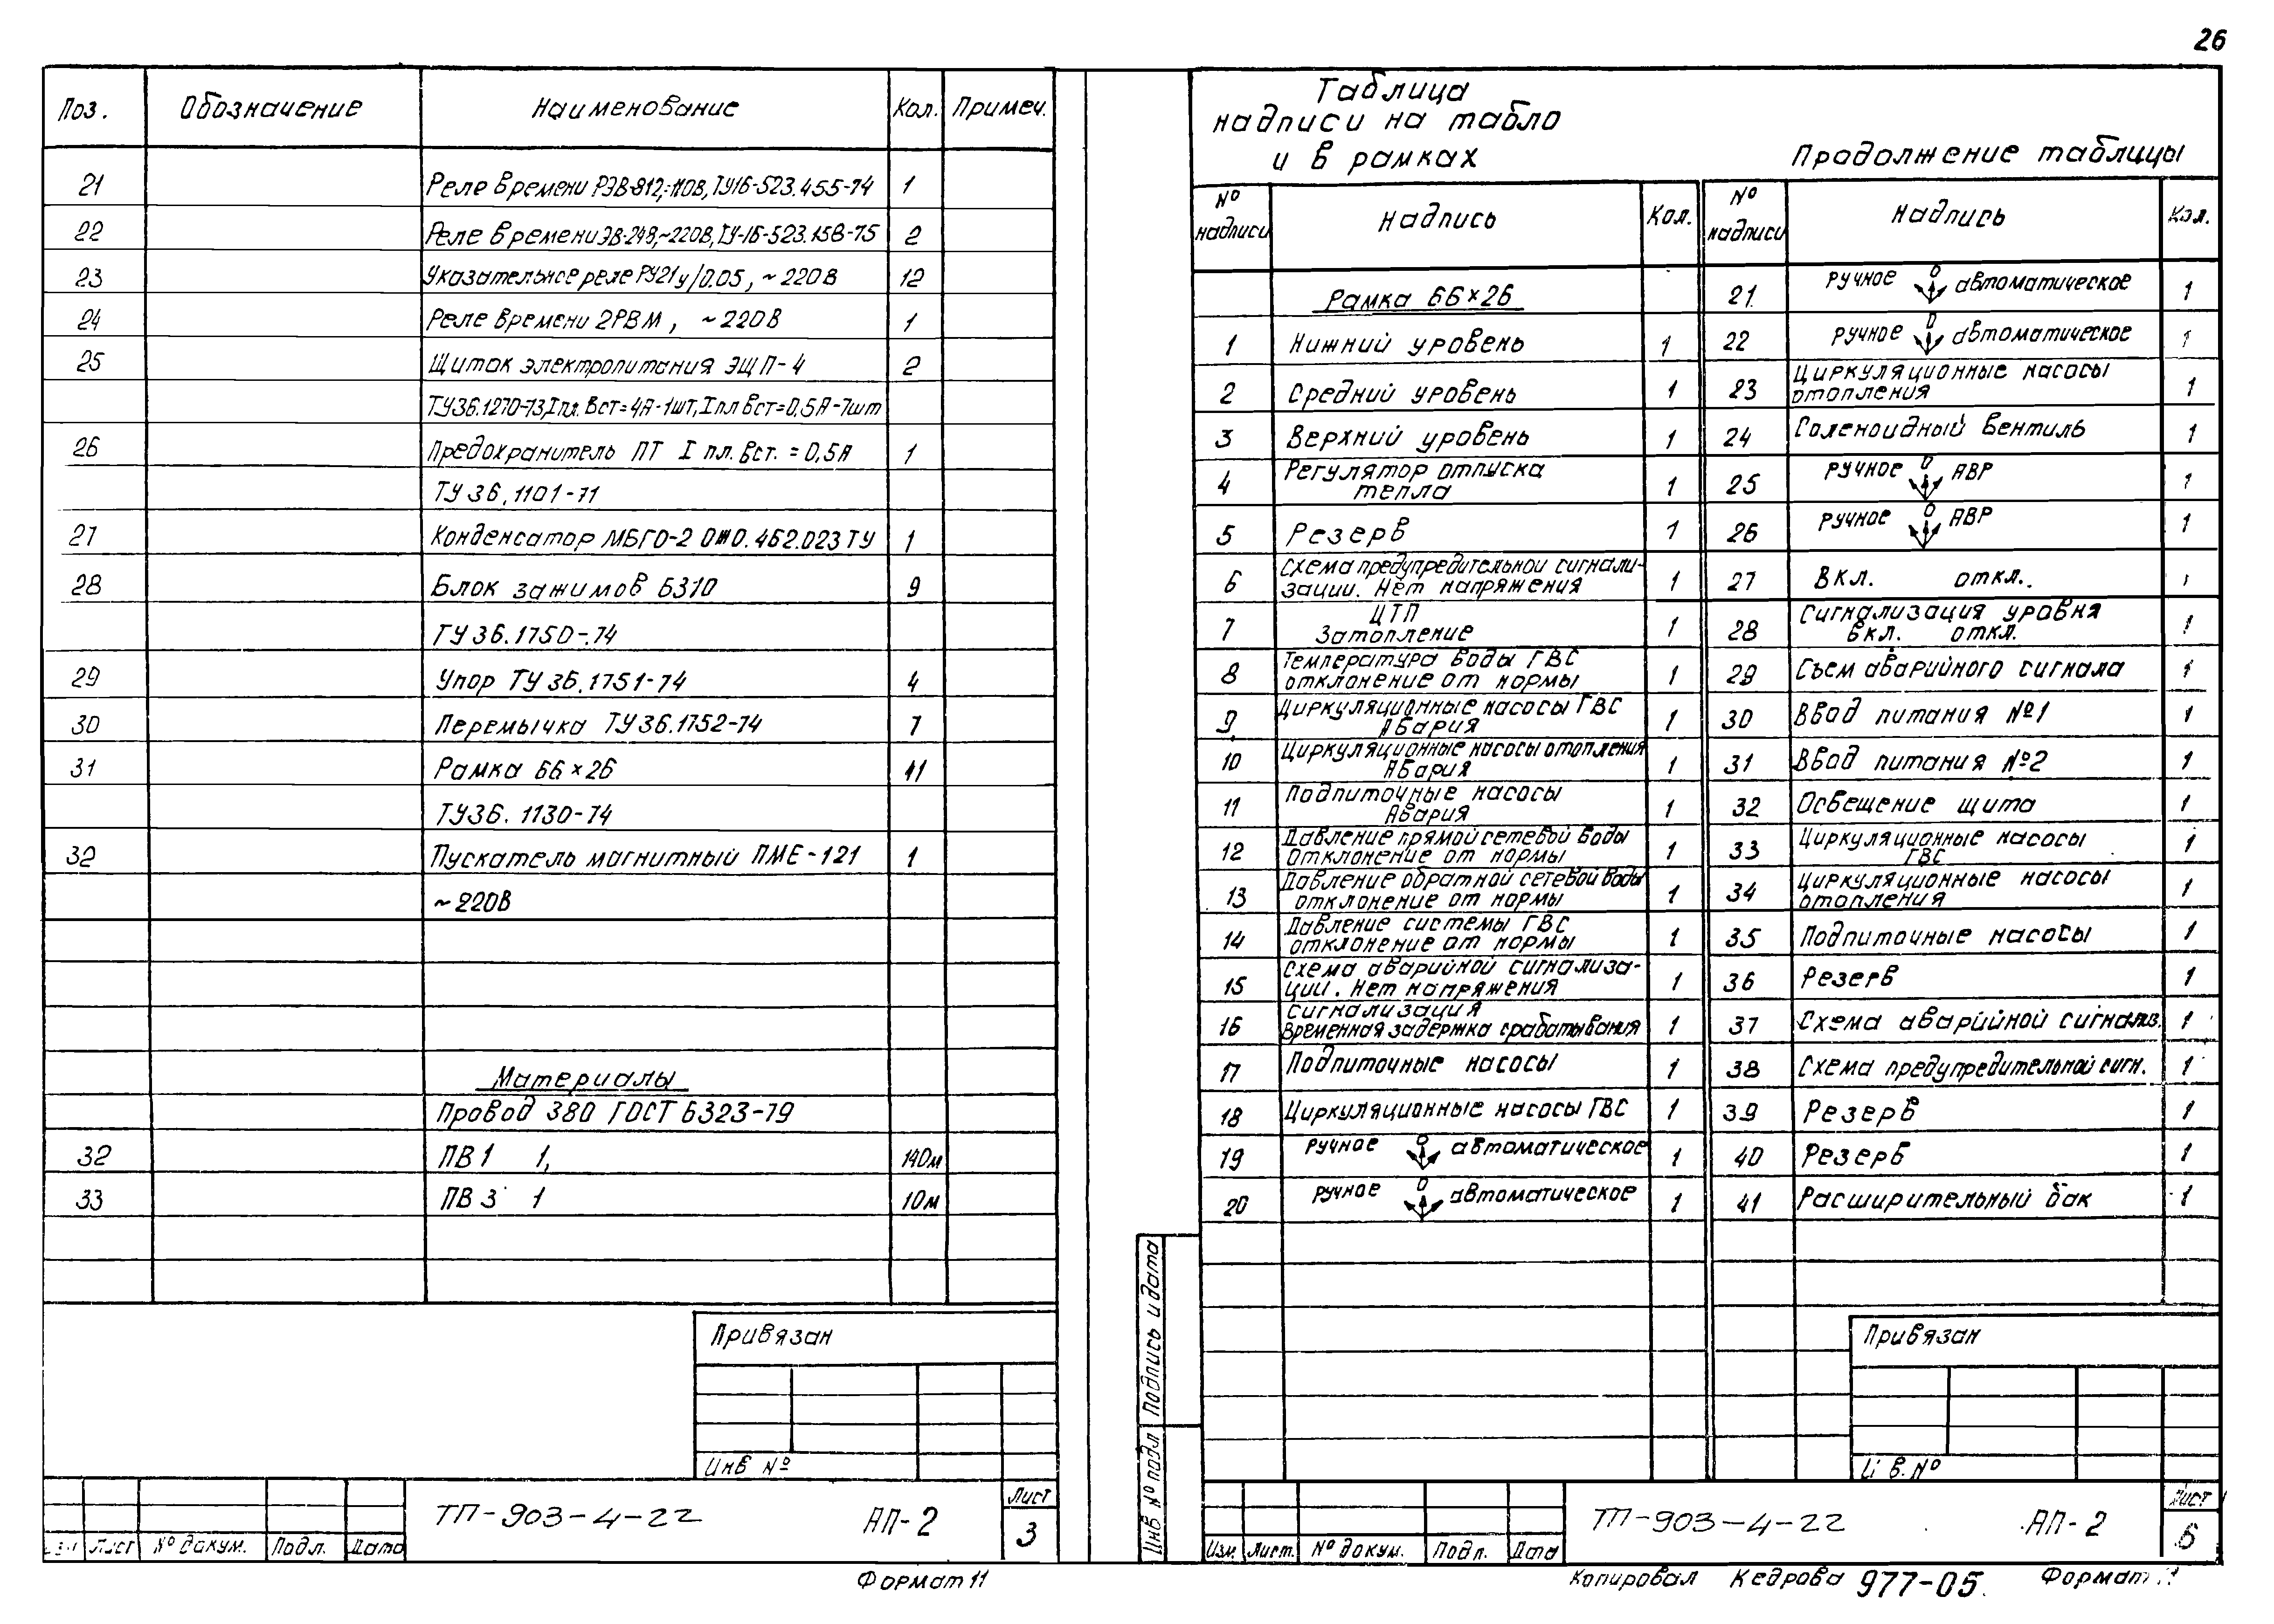 26
Поз. Обозначение Наименование Кол. Примеч.
21 Реле времени РЭВ-812,=110В, ТУ16-523.455-74 1
22 Реле времени ЭВ-248,~220В, ТУ-16-523.158-75 2
23 Указательное реле РУ21у/0.05, ~220В 12
24 Реле времени 2РВМ, ~220В 1
25 Щиток электропитания ЭЩП-4 2
ТУ36.1270-73, Iпл. Вст=4А-1шт, Iпл Вст=0,5А-7шт
26 Предохранитель ПТ I пл. Вст. = 0,5А 1
ТУ 36.1101-71
27 Конденсатор МБГО-2 ОЖ0.462.023 ТУ 1
28 Блок зажимов БЗ10 9
ТУ 36.1750-74
29 Упор ТУ 36.1751-74 4
30 Перемычка ТУ 36.1752-74 7
31 Рамка 66×26 41
ТУ36.1130-74
32 Пускатель магнитный ПМЕ-121 1
~220В
Материалы
Провод 380 ГОСТ 6323-79
32 ПВ1 1, 140м
33 ПВ3 1 10м
Привязан
Инв №
Лист № докум. Подл. Дата
ТП-903-4-22 АП-2
Лист
3
Формат 11
Таблица
надписи на табло
и в рамках
Продолжение таблицы
№ надписи Надпись Кол.
Рамка 66×26
1 Нижний уровень 1
2 Средний уровень 1
3 Верхний уровень 1
4 Регулятор отпуска
тепла 1
5 Резерв 1
6 Схема предупредительной сигнали-
зации. Нет напряжения 1
7 ЦТП
Затопление 1
8 Температура воды ГВС
отклонение от нормы 1
9 Циркуляционные насосы ГВС
Авария 1
10 Циркуляционные насосы отопления
Авария 1
11 Подпиточные насосы
Авария 1
12 Давление прямой сетевой воды
отклонение от нормы 1
13 Давление обратной сетевой воды
отклонение от нормы 1
14 Давление системы ГВС
отклонение от нормы 1
15 Схема аварийной сигнализа-
ции. Нет напряжения 1
16 Сигнализация
временная задержка срабатывания 1
17 Подпиточные насосы 1
18 Циркуляционные насосы ГВС 1
19 ручное 0 автоматическое 1
20 ручное 0 автоматическое 1
№ надписи Надпись Кол.
21 ручное 0 автоматическое 1
22 ручное 0 автоматическое 1
23 Циркуляционные насосы
отопления 1
24 Соленоидный вентиль 1
25 ручное 0 АВР 1
26 ручное 0 АВР 1
27 Вкл. откл. 1
28 Сигнализация уровня
вкл. откл. 1
29 Съем аварийного сигнала 1
30 Ввод питания №1 1
31 Ввод питания №2 1
32 Освещение щита 1
33 Циркуляционные насосы
ГВС 1
34 Циркуляционные насосы
отопления 1
35 Подпиточные насосы 1
36 Резерв 1
37 Схема аварийной сигнализ. 1
38 Схема предупредительной сигн. 1
39 Резерв 1
40 Резерв 1
41 Расширительный бак 1
Подпись и дата
Инв № подл
Привязан
Изм. Лист. № докум. Подп. Дата
ТП-903-4-22 АП-2
Лист
6
Копировал Кедрова 977-05. Формат